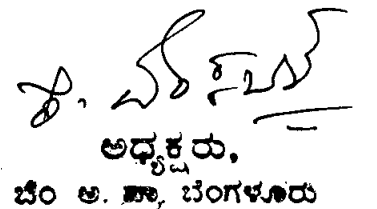 ಅಧ್ಯಕ್ಷರು,
ಬೆಂ ಅ. ಪ್ರಾ, ಬೆಂಗಳೂರು